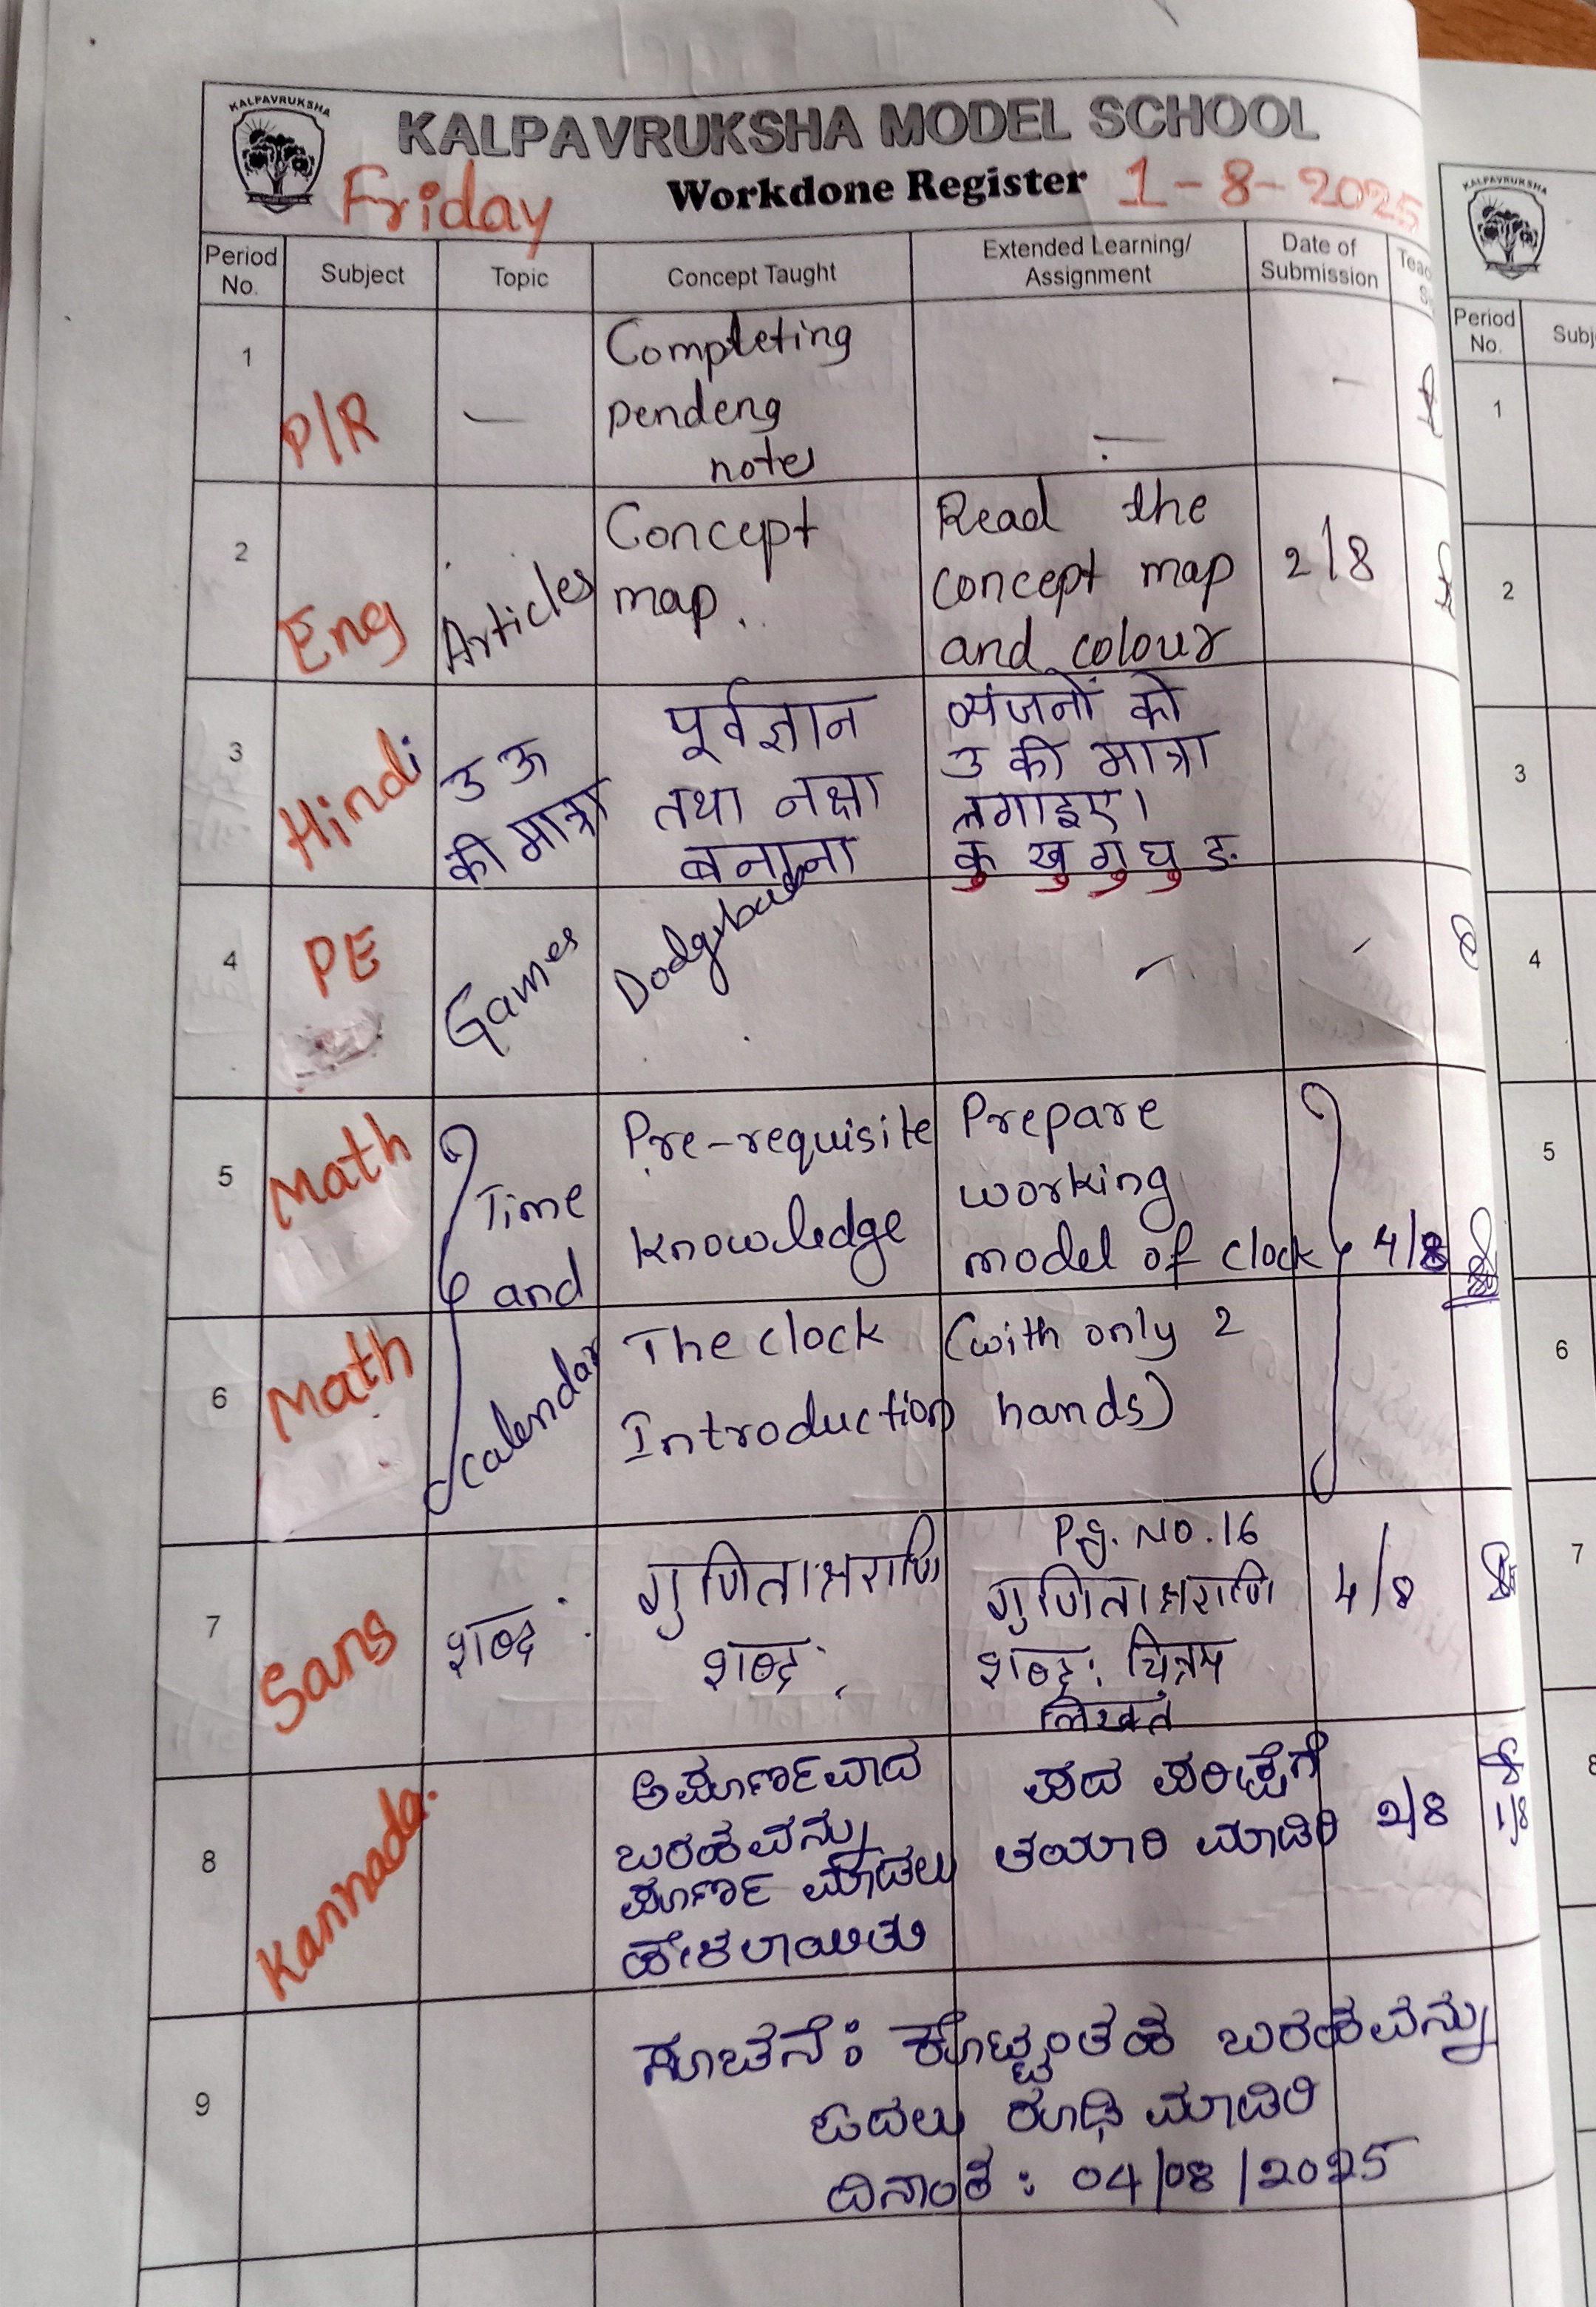 KALPAVRUKSHA
KALPAVRUKSHA MODEL SCHOOL
Friday Workdone Register 1-8-2025
Period No. Subject Topic Concept Taught Extended Learning/ Assignment Date of Submission
1 P/R — Completing — —
pendeng
notes
2 Eng Articles Concept Read the 2/8
map. concept map
and colour
3 Hindi उ ऊ पूर्वज्ञान व्यंजनों को
की मात्रा तथा नक्षा उ की मात्रा
बनाना लगाइए।
कु खु गु घु ङ
4 PE Games Dodgeball - -
5 Math Time Pre-requisite Prepare
and knowledge working
model of clock 4/8
6 Math calendar The clock (with only 2
Introduction hands)
7 Sans शब्द: गुणिताक्षराणि Pg. No. 16 4/8
शब्द: गुणिताक्षराणि
शब्द:
8 Kannada. ಅಪೂರ್ಣವಾದ ಪದ ಪರೀಕ್ಷೆಗೆ 2/8 1/8
ಬರಹವನ್ನು ತಯಾರಿ ಮಾಡಿರಿ
ಪೂರ್ಣ ಮಾಡಲು
ಹೇಳಲಾಯಿತು
9 ಸೂಚನೆ: ಕೊಟ್ಟಂತಹ ಬರಹವನ್ನು
ಓದಲು ರೂಢಿ ಮಾಡಿರಿ
ದಿನಾಂಕ: 04/08/2025
KALPAVRUKSHA
Period No.
1
2
3
4
5
6
7
8